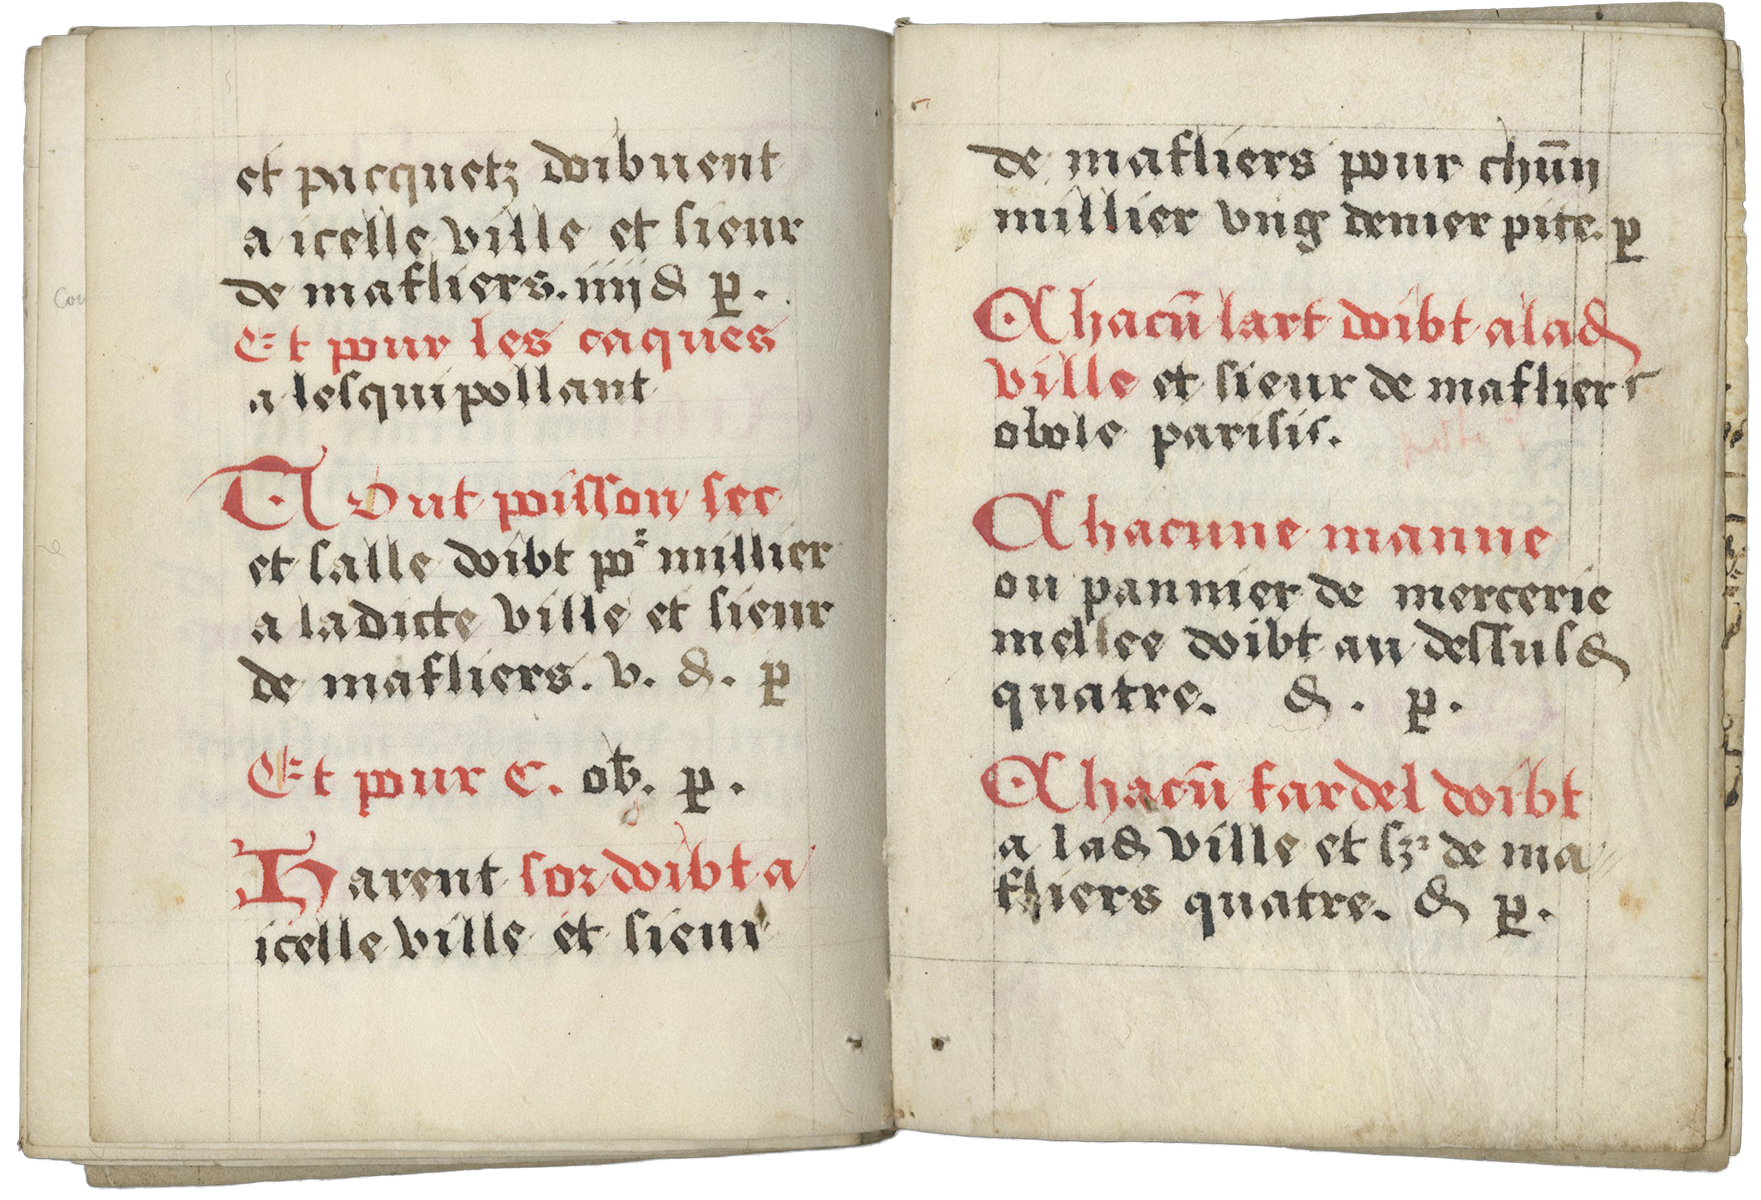 et pacquetz doibuent
a icelle ville et sieur
de mafliers. iiij d p.
Et pour les caques
a lesquipollant
Tout poisson sec
et salle doibt po^r millier
a ladicte ville et sieur
de mafliers. v. d. p
Et pour C. ob. p.
Harent sor doibt a
icelle ville et sieur
de mafliers pour chūn
millier vng denier pite. p
Chacū lart doibt a lad
ville et sieur de mafliers
obole parisis.
Chacune manne
ou pannier de mercerie
mellee doibt au dessusd
quatre. d. p.
Chacū fardel doibt
a lad ville et sr de ma-
fliers quatre. d p.